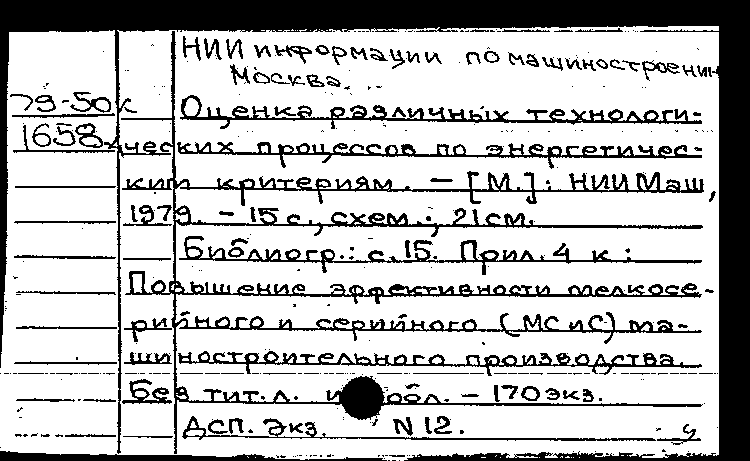 НИИ информации по машиностроению
Москва.
79-50к Оценка различных технологи-
1658 ческих процессов по энергетичес-
ким критериям. — [М.]: НИИМаш,
1979. - 15 с., схем.; 21 см.
Библиогр.: с. 15. Прил. 4 к :
Повышение эффективности мелкосе-
рийного и серийного (МС и С) ма-
шиностроительного производства.
Без тит. л. и обл. - 170 экз.
ДСП. Экз. N 12.